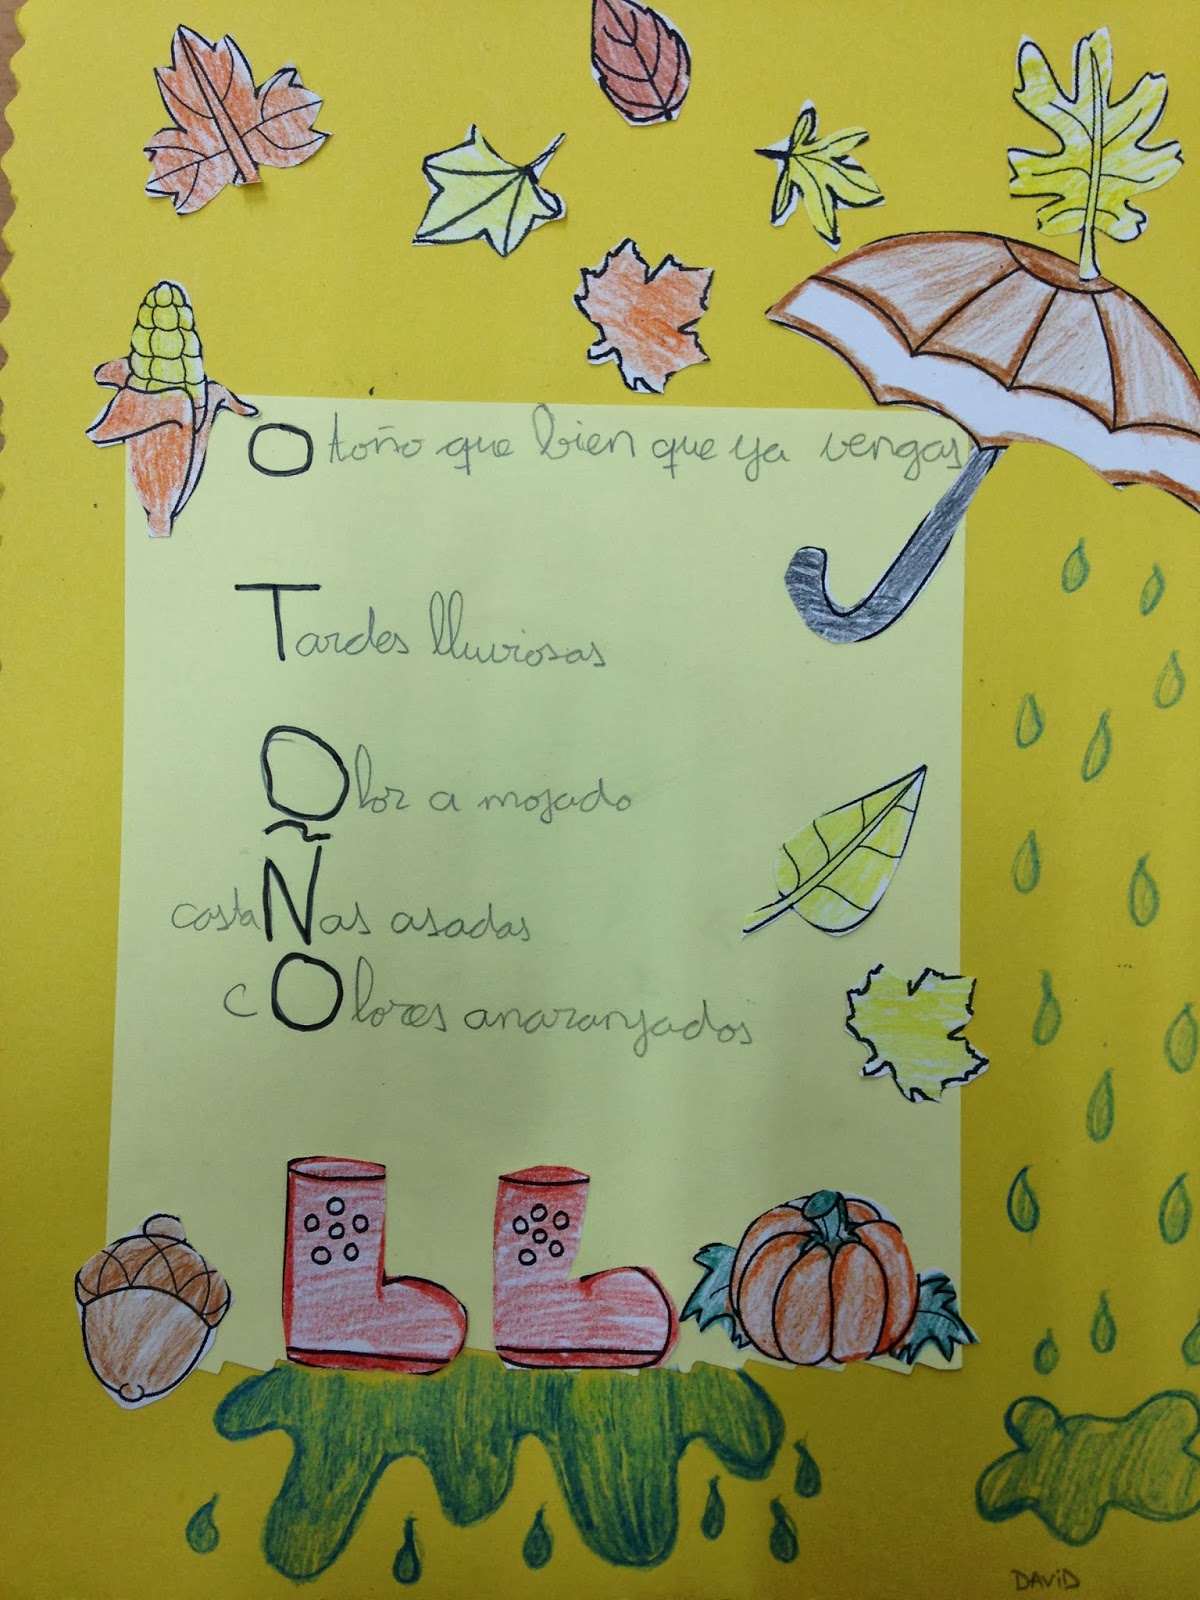 Otoño que bien que ya vengas
Tardes lluviosas
Olor a mojado
costaÑas asadas
cOlores anaranjados
DAViD